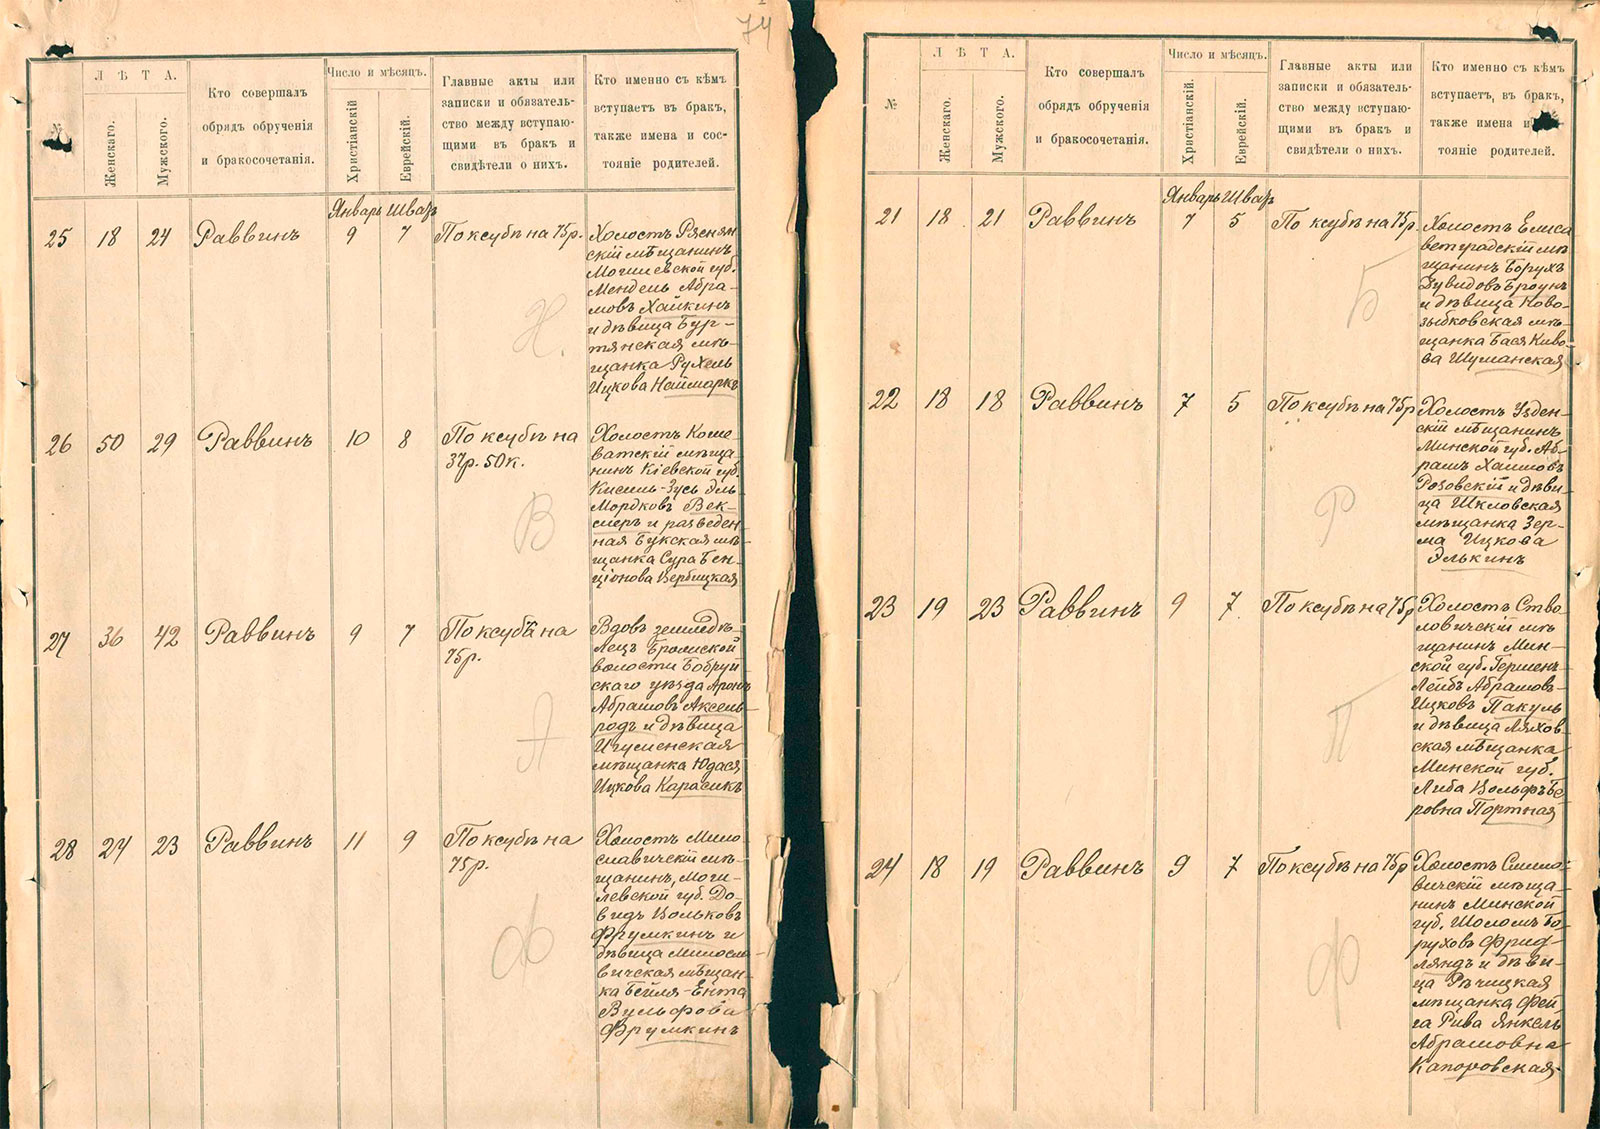 74
№
Л Ѣ Т А.
Женскаго.
Мужского.
Кто совершалъ
обрядъ обрученія
и бракосочетанія.
Число и мѣсяцъ.
Христіанскій
Еврейскій.
Главные акты или
записки и обязатель-
ство между вступаю-
щими въ бракъ и
свидѣтели о нихъ.
Кто именно съ кѣмъ
вступаетъ въ бракъ,
также имена и сос-
тояніе родителей.
Январь Шватъ
25 18 24 Раввинъ 9 7 По ксубѣ на 75р.
Холостъ Рясnян
скій мѣщанинъ
Могилевской губ.
Мендель Абра-
мовъ Хайкинъ
и дѣвица Бур-
тянская мѣ-
щанка Рухель
Ицкова Наймаркъ
Н.
26 50 29 Раввинъ 10 8 По ксубѣ на
37р. 50к.
Холостъ Коше-
ватскій мѣща-
нинъ Кіевской губ.
Кисель-Зусь Эль
Мордковъ Век-
слеръ и разведен-
ная Букская мѣ-
щанка Сура Бен-
ціонова Вербицкая
В
27 36 42 Раввинъ 9 7 По ксубѣ на
75р.
Вдовъ земледѣ-
лецъ
волости Бобруй-
скаго уѣзда Аронъ
Абрамовъ Аксель-
родъ и дѣвица
Игуменская
мѣщанка Юдася
Ицкова Карасикъ
А
28 24 23 Раввинъ 11 9 По ксубѣ на
75р.
Холостъ Мило-
славичскій мѣ-
щанинъ, Моги-
левской губ. До-
видъ Вольковъ
Фрумкинъ и
дѣвица Милосла
вичская мѣщан-
ка Бейля-Ента
Вульфова
Фрумкинъ
Ф
№
Л Ѣ Т А.
Женскаго.
Мужского.
Кто совершалъ
обрядъ обрученія
и бракосочетанія.
Число и мѣсяцъ.
Христіанскій.
Еврейскій.
Главные акты или
записки и обязатель-
ство между вступаю-
щими въ бракъ и
свидѣтели о нихъ.
Кто именно съ кѣмъ
вступаетъ, въ бракъ,
также имена и
тояніе родителей.
Январь Шватъ
21 18 21 Раввинъ 7 5 По ксубѣ на 75р.
Холостъ Елиса
ветградскій мѣ-
щанинъ Борухъ
Дувидовъ Броунъ
и дѣвица Ново-
зыбковская мѣ-
щанка Бася Киво-
ва Шуманская
Б
22 18 18 Раввинъ 7 5 По ксубѣ на 75р
Холостъ Узден-
скій мѣщанинъ
Минской губ. Аб-
рамъ Хаимовъ
Розовскій и дѣви-
ца Шкловская
мѣщанка Зер-
ма Ицкова
Элькинъ
Р
23 19 23 Раввинъ 9 7. По ксубѣ на 75р
Холостъ Ство-
ловичскій мѣ-
щанинъ Мин-
ской губ. Гершенъ
Лейбъ Абрамовъ-
Ицковъ Пакуль
и дѣвица Ляхов-
ская мѣщанка
Минской губ.
Либа Вольфъ-Бе
ровна Портная
П
24 18 19 Раввинъ 9 7 По ксубѣ на 75р
Холостъ Смило-
вичскій мѣща-
нинъ Минской
губ. Шоломъ Бо-
руховъ Фрид-
ляндъ и дѣви-
ца Рѣчицкая
мѣщанка Фей-
га Рива Янкель
Абрамовна
Капоровская.
Ф